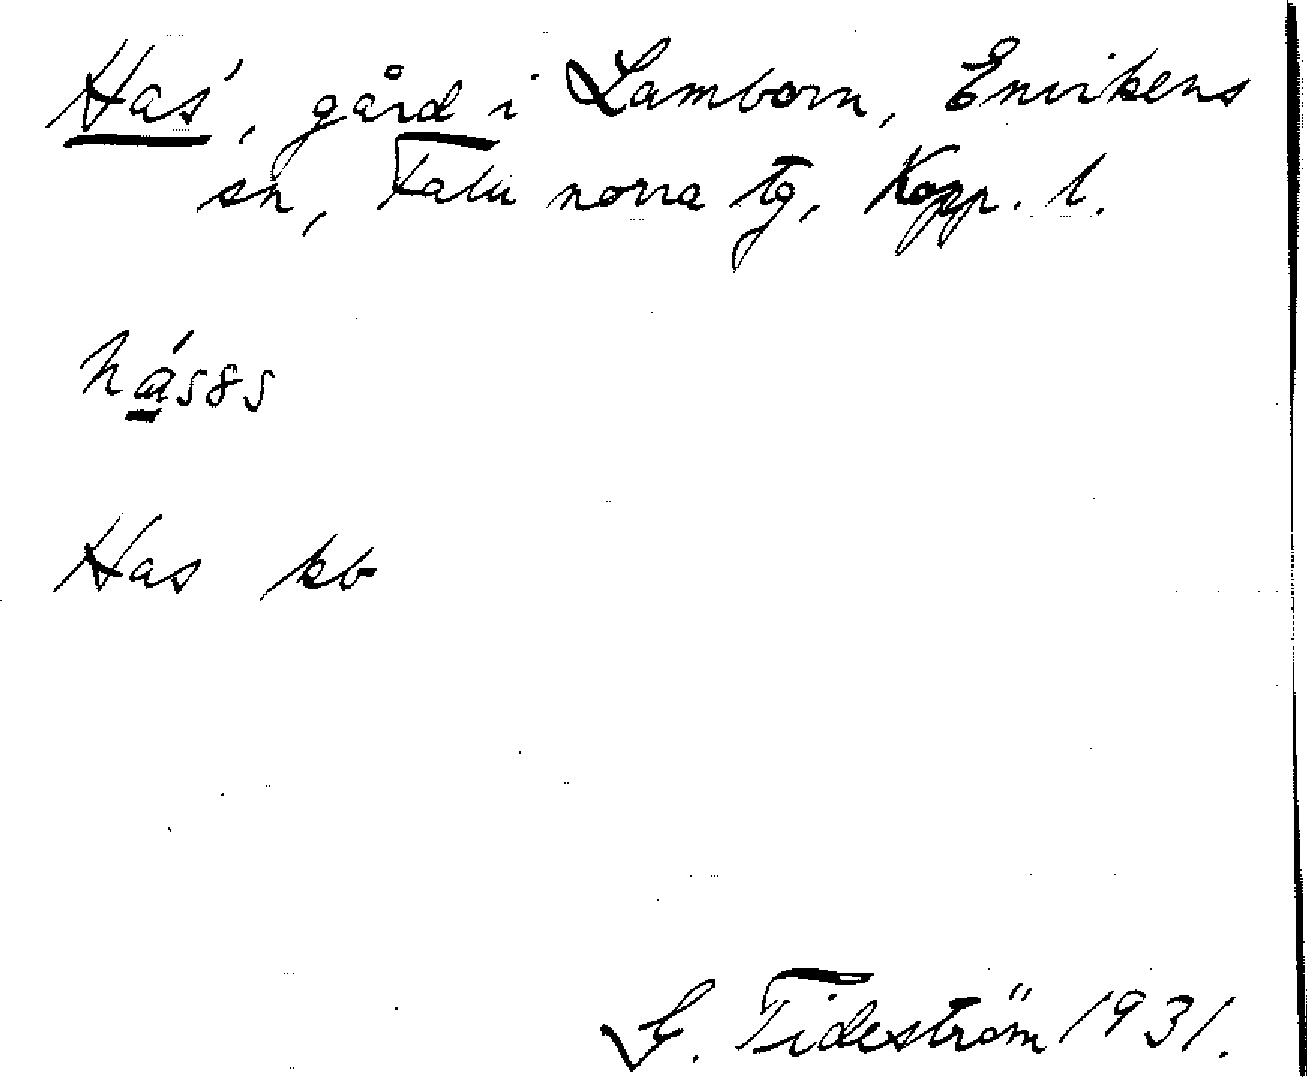 Has', gård i Lamborn, Envikens
sn, Falu norra tg, Kopp. l.
hásss
Has kb
G. Tideström 1931.